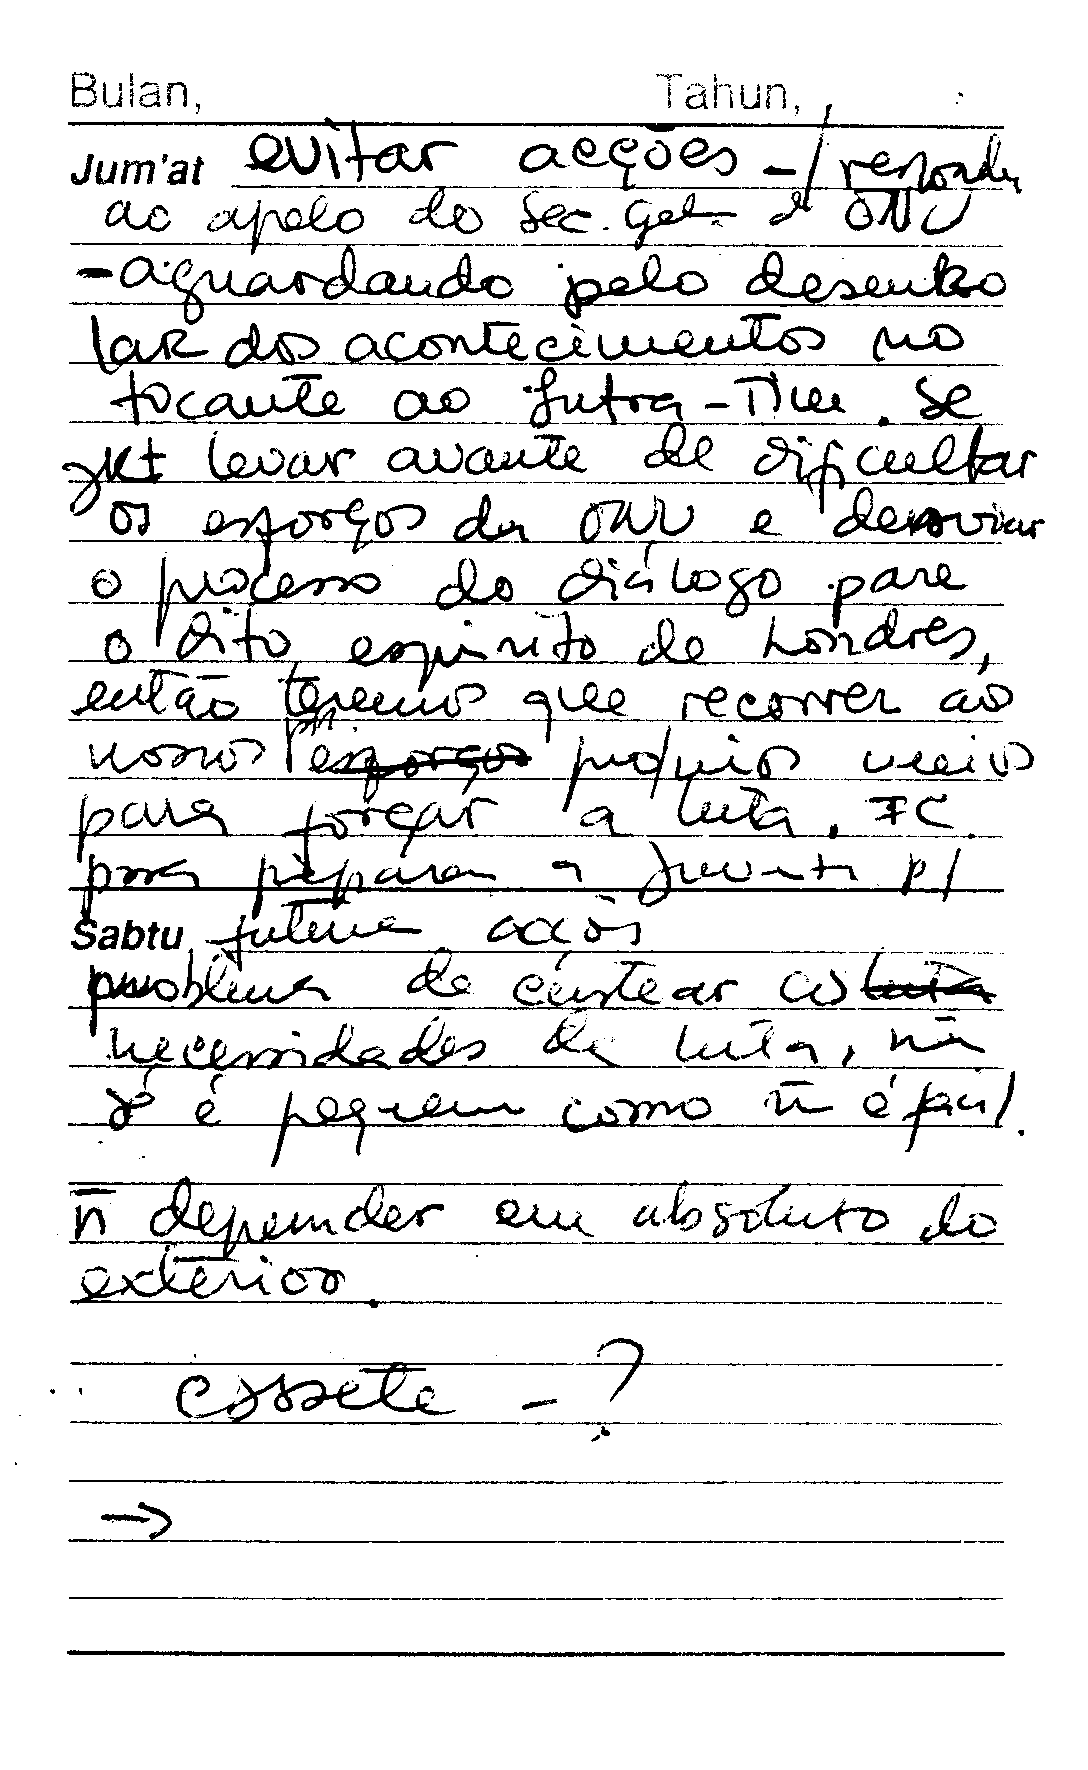 Bulan, Tahun,
Jum'at evitar acções - / responder
ao apelo do Sec. Ger. d ONU
- aguardando pelo desenro
lar dos acontecimentos no
tocante ao Intra-Tim. Se
Jkt levar avante de dificultar
os esforços da ONU e desviar
o processo do diálogo para
o dito espirito de Londres,
então teremos que recorrer aos
nossos esforços próprios meios
para forçar a luta. FC.
para preparar a Juvent. p/
Sabtu futura acções
problema de custear as luta
necessidades da luta, não
é pequeno como ñ é fácil.
ñ depender em absoluto do
exterior.
cassete - ?
→